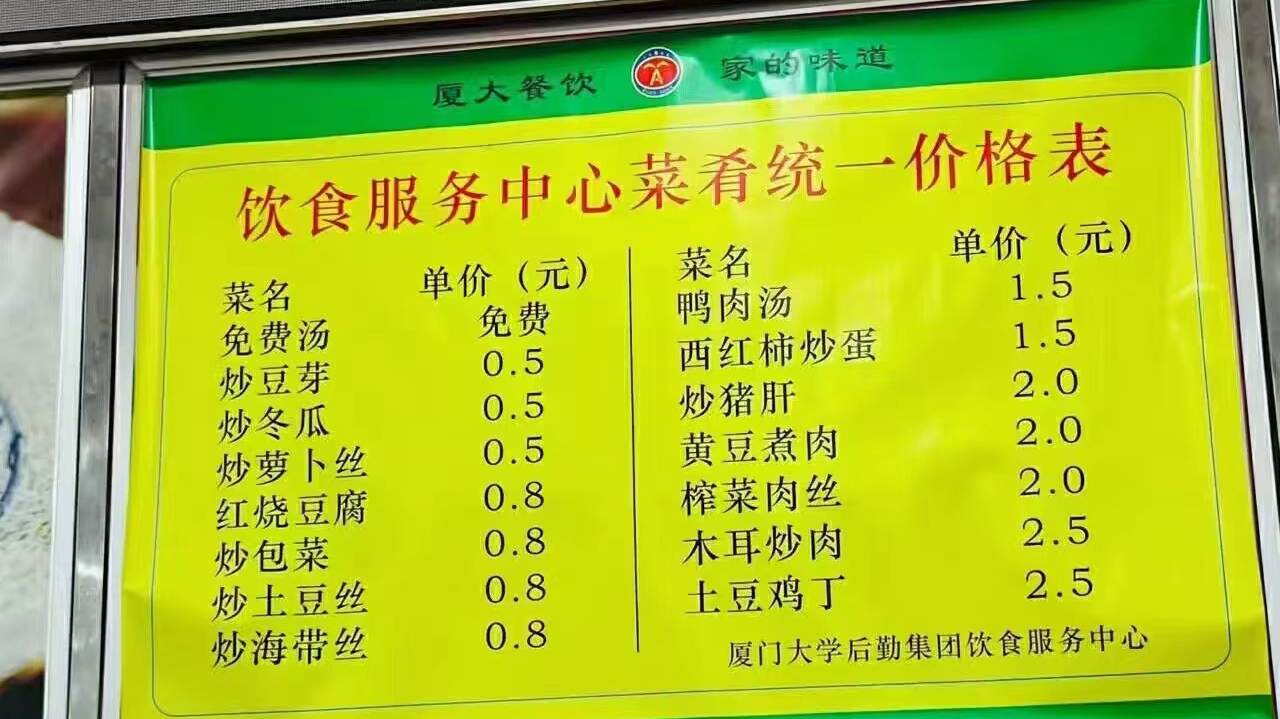 厦大餐饮 家的味道
饮食服务中心菜肴统一价格表
菜名 单价（元）
免费汤 免费
炒豆芽 0.5
炒冬瓜 0.5
炒萝卜丝 0.5
红烧豆腐 0.8
炒包菜 0.8
炒土豆丝 0.8
炒海带丝 0.8
菜名 单价（元）
鸭肉汤 1.5
西红柿炒蛋 1.5
炒猪肝 2.0
黄豆煮肉 2.0
榨菜肉丝 2.0
木耳炒肉 2.5
土豆鸡丁 2.5
厦门大学后勤集团饮食服务中心